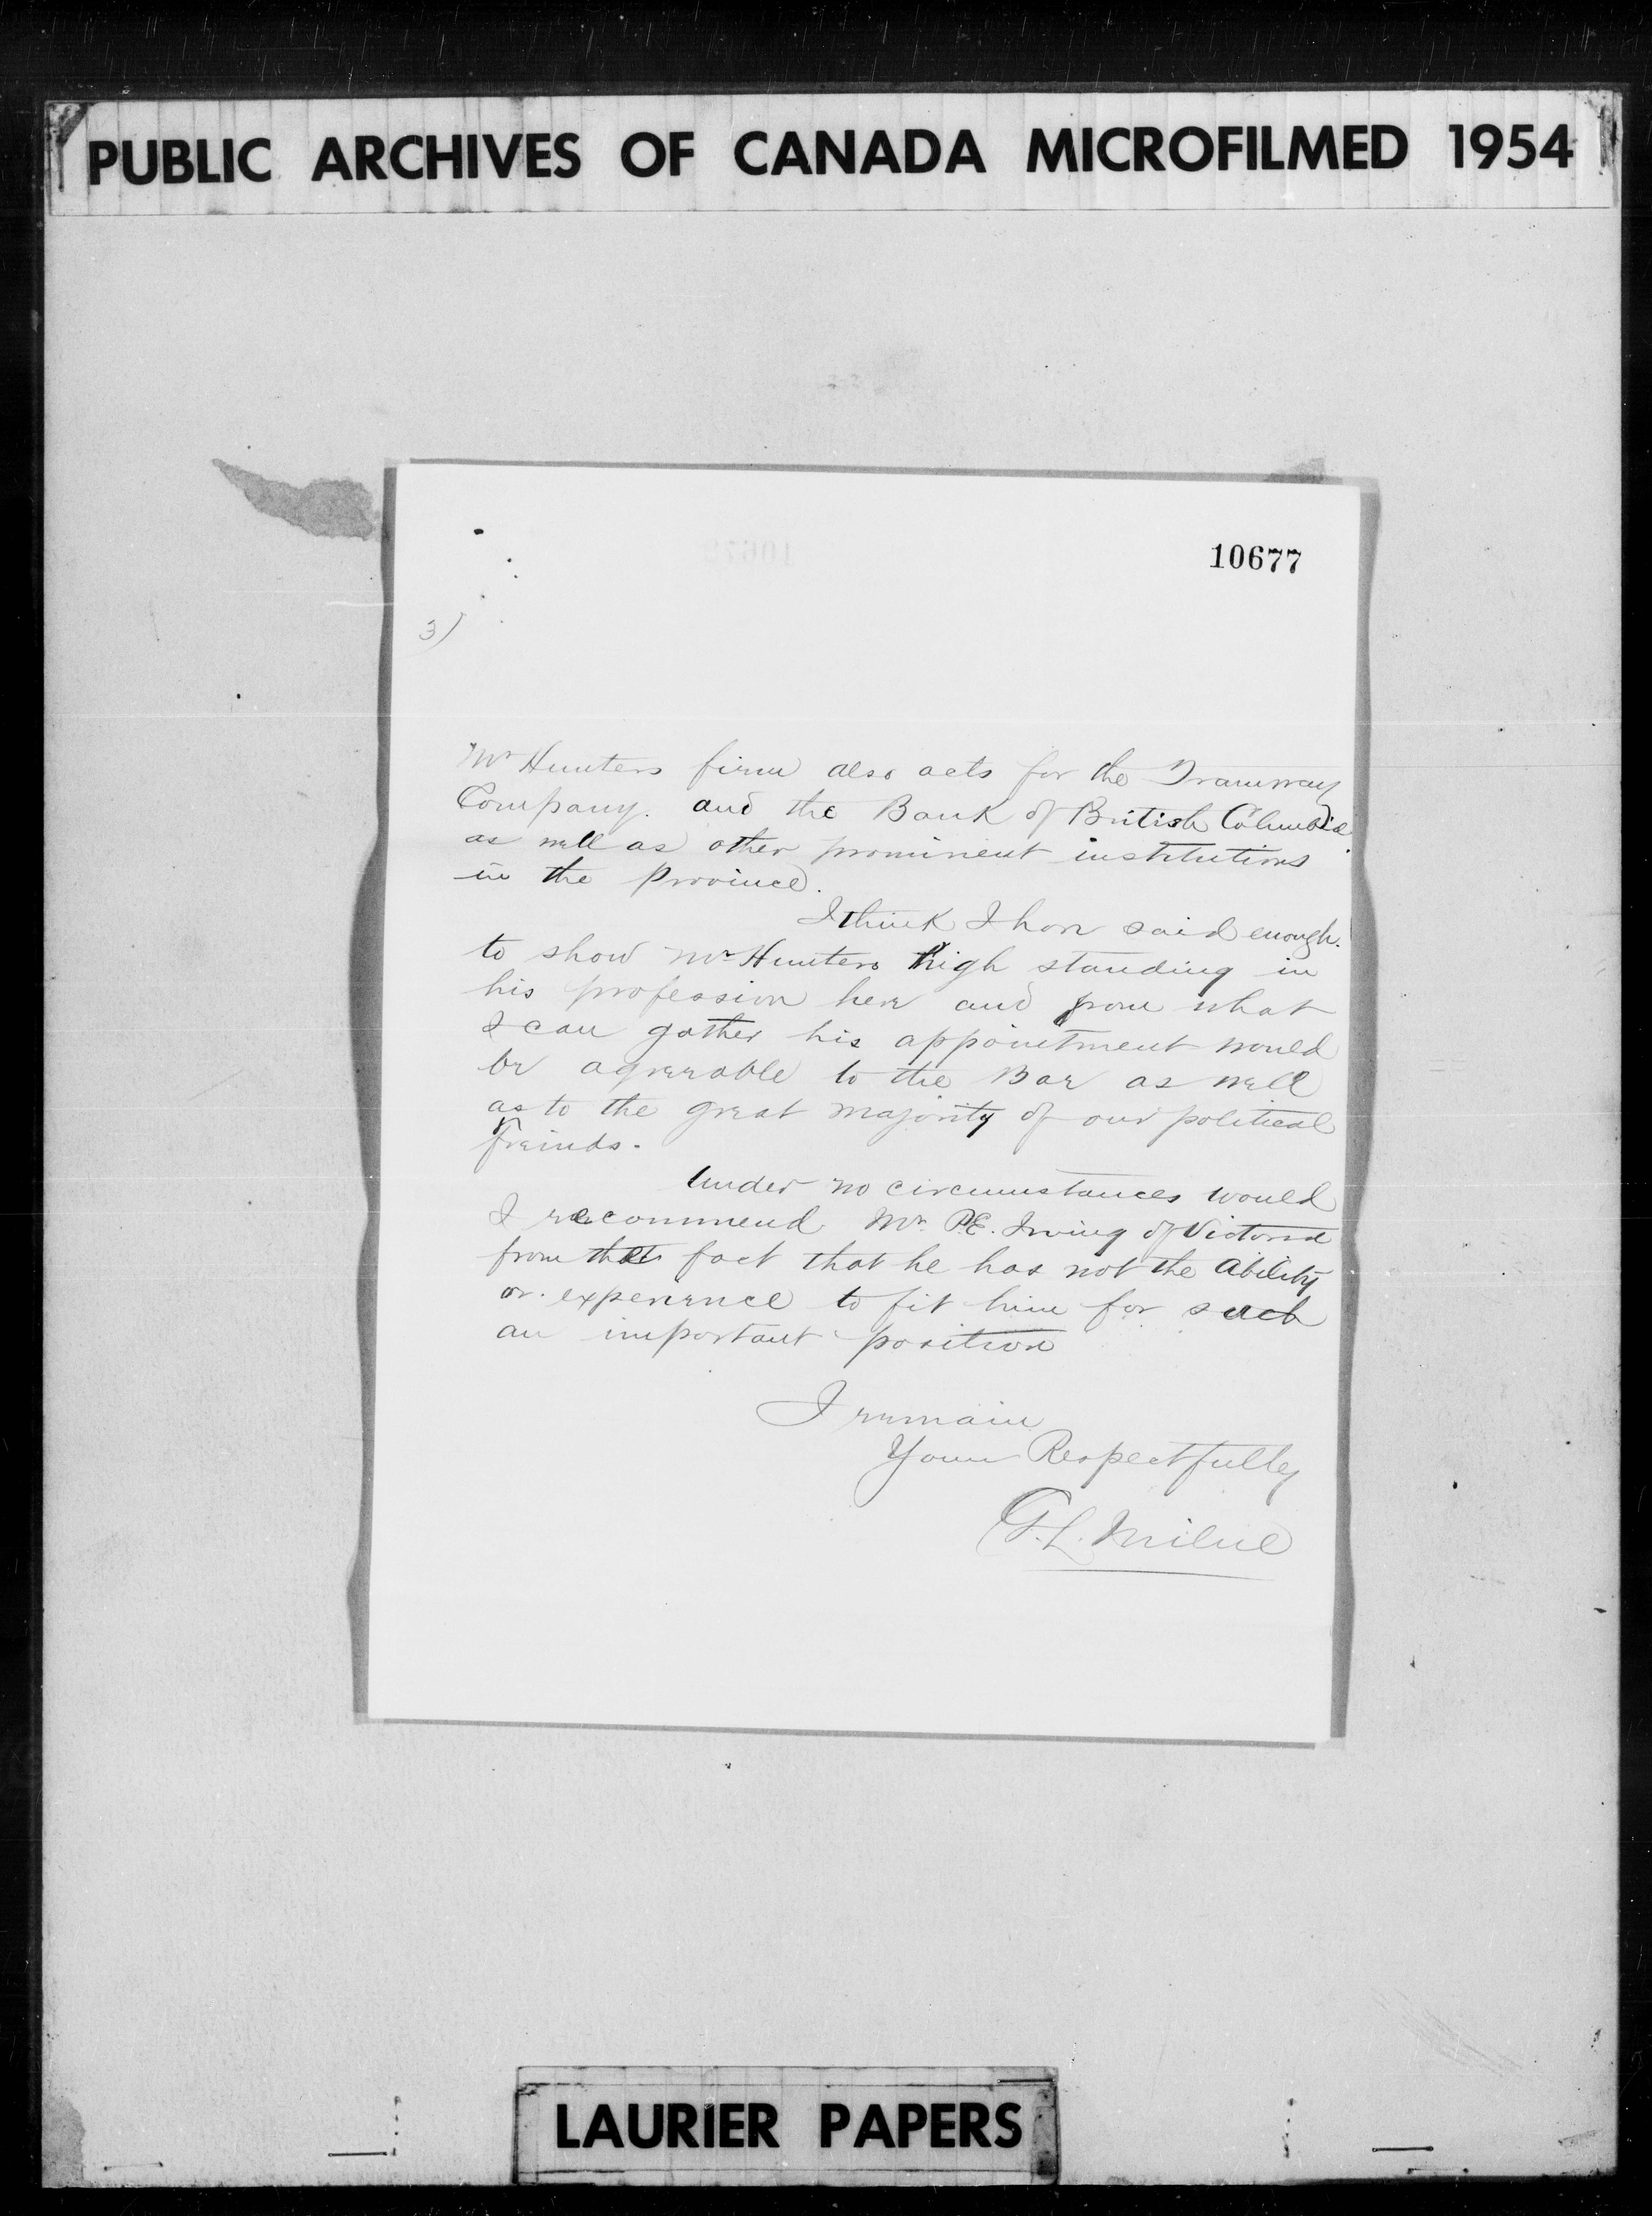 PUBLIC ARCHIVES OF CANADA MICROFILMED 1954
10677
3)
Mr Hunters firm also acts for the Tramway
Company. and the Bank of British Columbia
as well as other prominent institutions
in the Province.
I think I have said enough.
to show Mr Hunters high standing in
his profession here and from what
I can gather his appointment would
be agreeable to the Bar as well
as to the great majority of our political
Freinds.
Under no circumstances would
I recommend Mr. P.E. Irving of Victoria
from the fact that he has not the ability
or experience to fit him for such
an important position
I remain
Yours Respectfully
G.L. Milne
LAURIER PAPERS